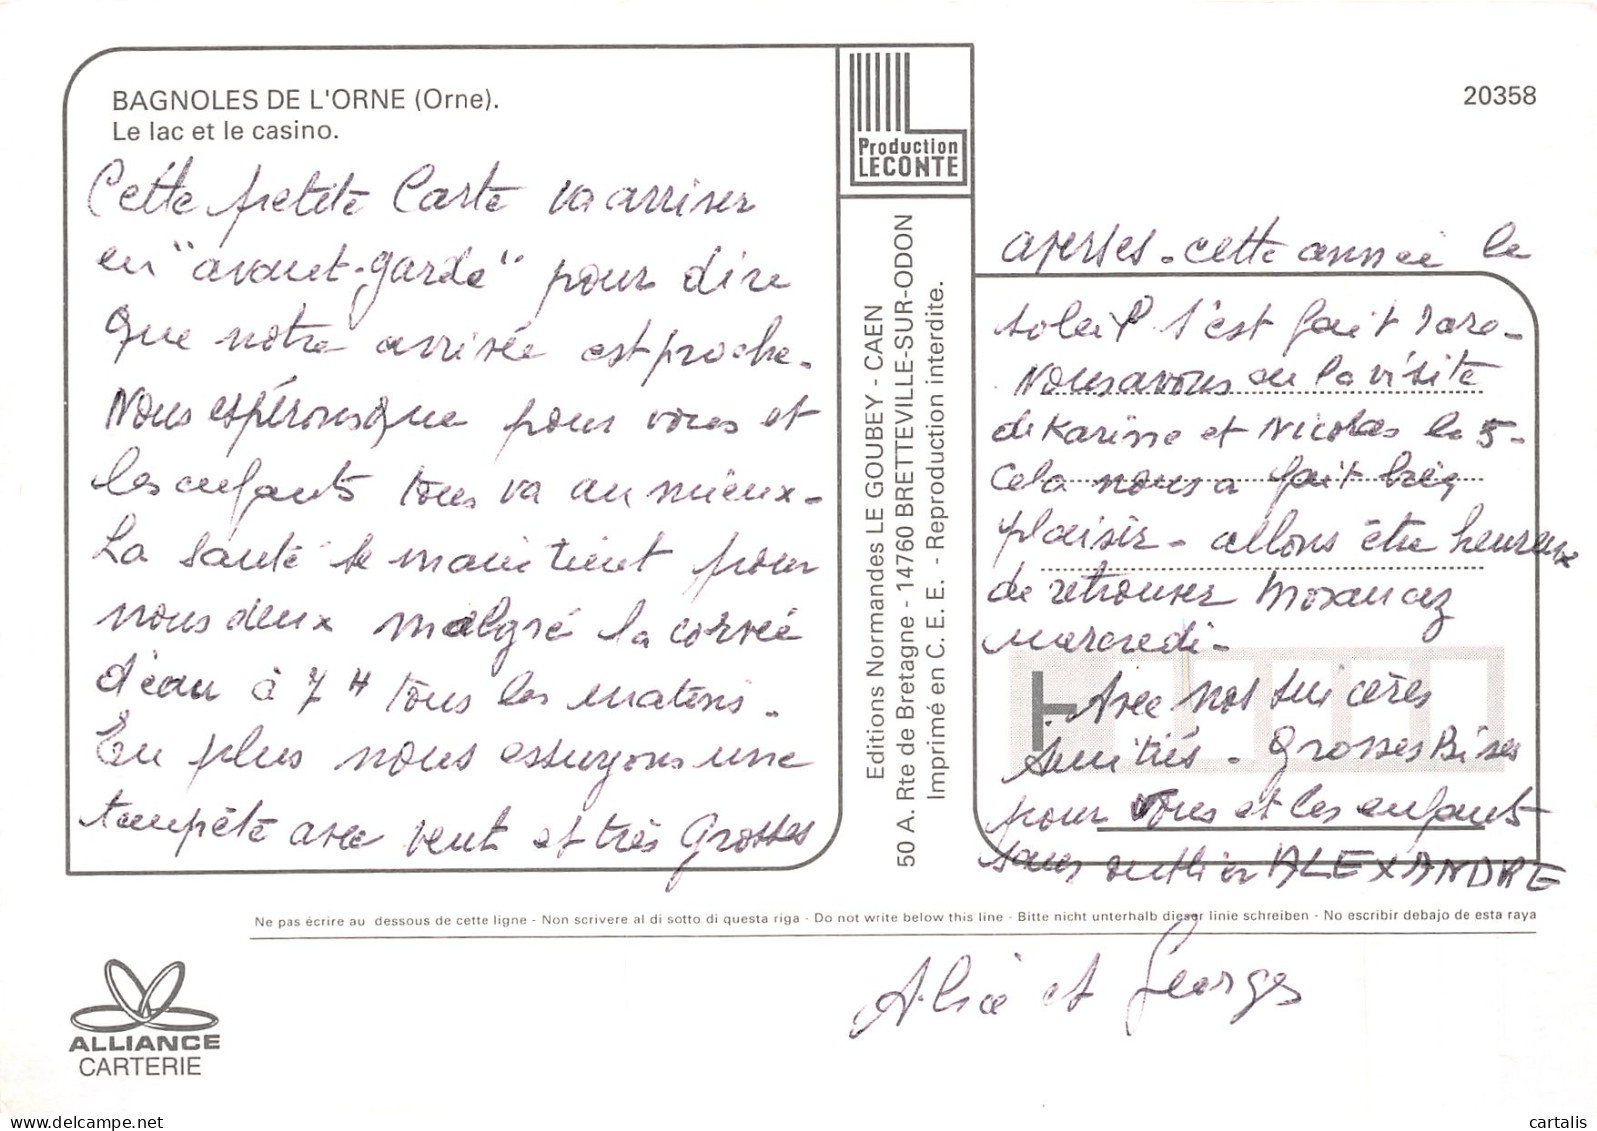 BAGNOLES DE L'ORNE (Orne).
Le lac et le casino.
Cette petite Carte va arriver
en "avant-garde" pour dire
que notre arrivée est proche.
Nous espérons que pour vous et
les enfants tous va au mieux -
La santé se maintient pour
nous deux malgré la corvée
d'eau à 7 H tous les matins.
En plus nous essuyons une
tempête avec vent et très grosses
Production
LECONTE
Editions Normandes LE GOUBEY - CAEN
50 A. Rte de Bretagne - 14760 BRETTEVILLE-SUR-ODON
Imprimé en C. E. E. - Reproduction interdite.
20358
averses - cette année le
soleil s'est fait rare -
Nous avons eu la visite
de Karine et Nicolas le 5 -
Cela nous a fait bien
plaisir - allons être heureux
de retrouver Morancez
mercredi -
Avec nos sincères
Amitiés - Grosses Bises
pour vous et les enfants
sans oublier ALEXANDRE
Ne pas écrire au dessous de cette ligne - Non scrivere al di sotto di questa riga - Do not write below this line - Bitte nicht unterhalb dieser linie schreiben - No escribir debajo de esta raya
Alice et Georges
ALLIANCE
CARTERIE
cartalis